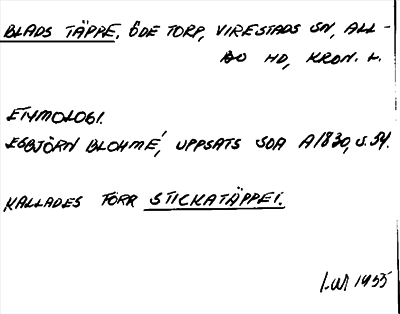 BLADS TÄPPE, ÖDE TORP, VIRESTADS SN, ALL-
BO HD, KRON. L.
ETYMOLOGI.
ESBJÖRN BLOHMÉ, UPPSATS SOA A1830, S. 54.
KALLADES FÖRR STICKATÄPPET.
1955